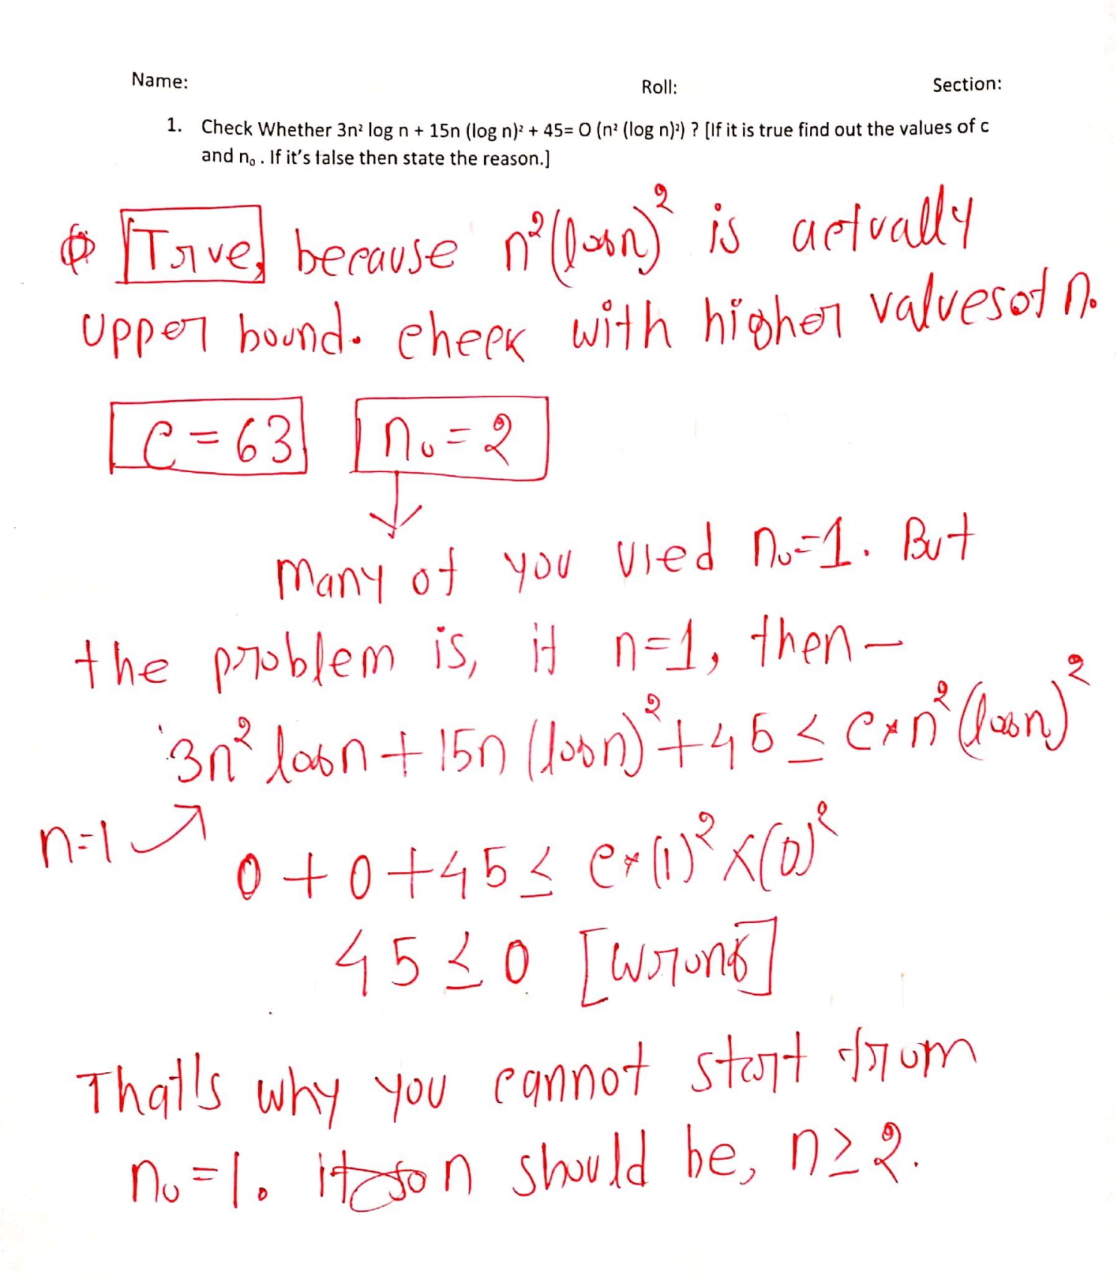 Name: Roll: Section:
1. Check Whether 3n² log n + 15n (log n)² + 45= O (n² (log n)²) ? [If it is true find out the values of c
and n₀ . If it's false then state the reason.]
True, because n²(logn)² is actually
upper bound. check with higher values of n.
C = 63 n₀ = 2
Many of you used n₀=1. But
the problem is, if n=1, then –
3n² logn + 15n (logn)² + 45 ≤ c*n² (logn)²
n=1
0 + 0 + 45 ≤ c*(1)² ×(0)²
45 ≤ 0 [wrong]
That's why you cannot start from
n₀ = 1. n should be, n ≥ 2.